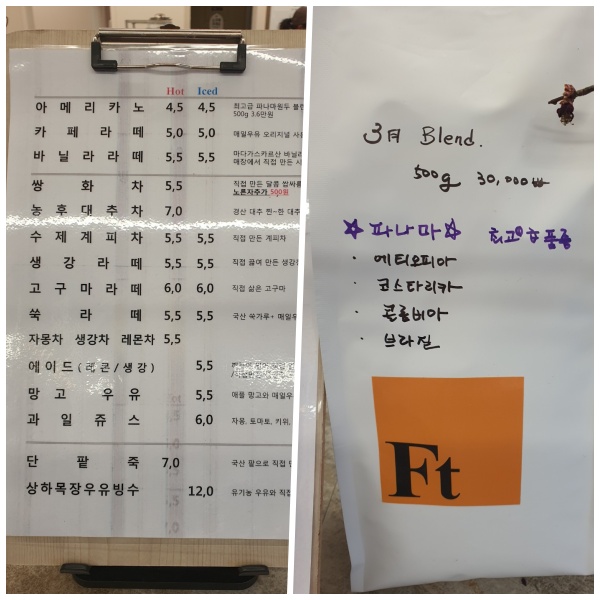 Hot Iced
아메리카노 4,5 4,5 최고급 파나마원두 블렌
500g 3.6만원
카페라떼 5,0 5,0 매일우유 오리지널 사용
바닐라라떼 5,5 5,5 마다가스카르산 바닐라
매장에서 직접 만든 시
쌍화차 5,5 직접 만든 달콤 쌉싸름
노른자추가 500원
농후대추차 7,0 경산 대추 찐~한 대추
수제계피차 5,5 5,5 직접 만든 계피차
생강라떼 5,5 5,5 직접 끓여 만든 생강
고구마라떼 6,0 6,0 직접 삶은 고구마
쑥라떼 5,5 5,5 국산 쑥가루+ 매일우
자몽차 생강차 레몬차 5,5
에이드(레몬/생강) 5,5
망고우유 5,5 애플 망고와 매일우
과일쥬스 6,0 자몽, 토마토, 키위,
단팥죽 7,0 국산 팥으로 직접
상하목장우유빙수 12,0 유기농 우유와 직접
3月 Blend.
500g 30,000₩
☆파나마☆ 최고급품종
· 에티오피아
· 코스타리카
· 콜롬비아
· 브라질
Ft